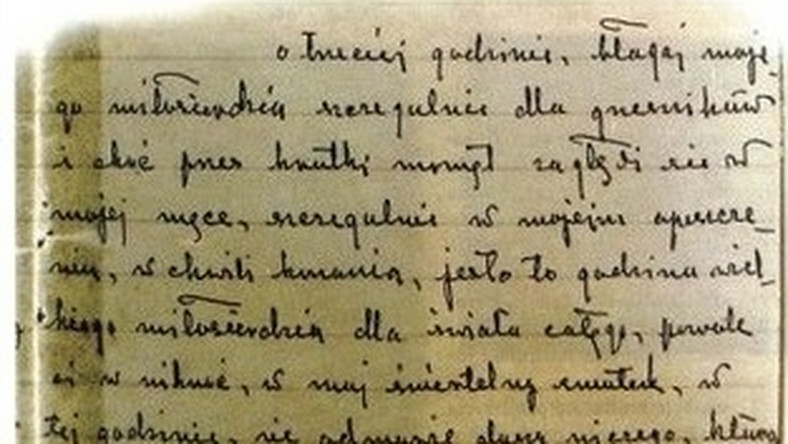 o trzeciej godzinie, błagaj moje_
go miłosierdzia szczegulnie dla grzeszników
i choć przez krutki moment zagłębi sie w
mojej męce, szczegulnie w mojem opuszcze_
niu, w chwili konania, jesto to godzina wiel_
kiego miłosierdzia dla świata całego, pozwole
ci w niknąć, w muj śmiertelny smutek, w
tej godzinie, nie odmuwię duszy niczego, która